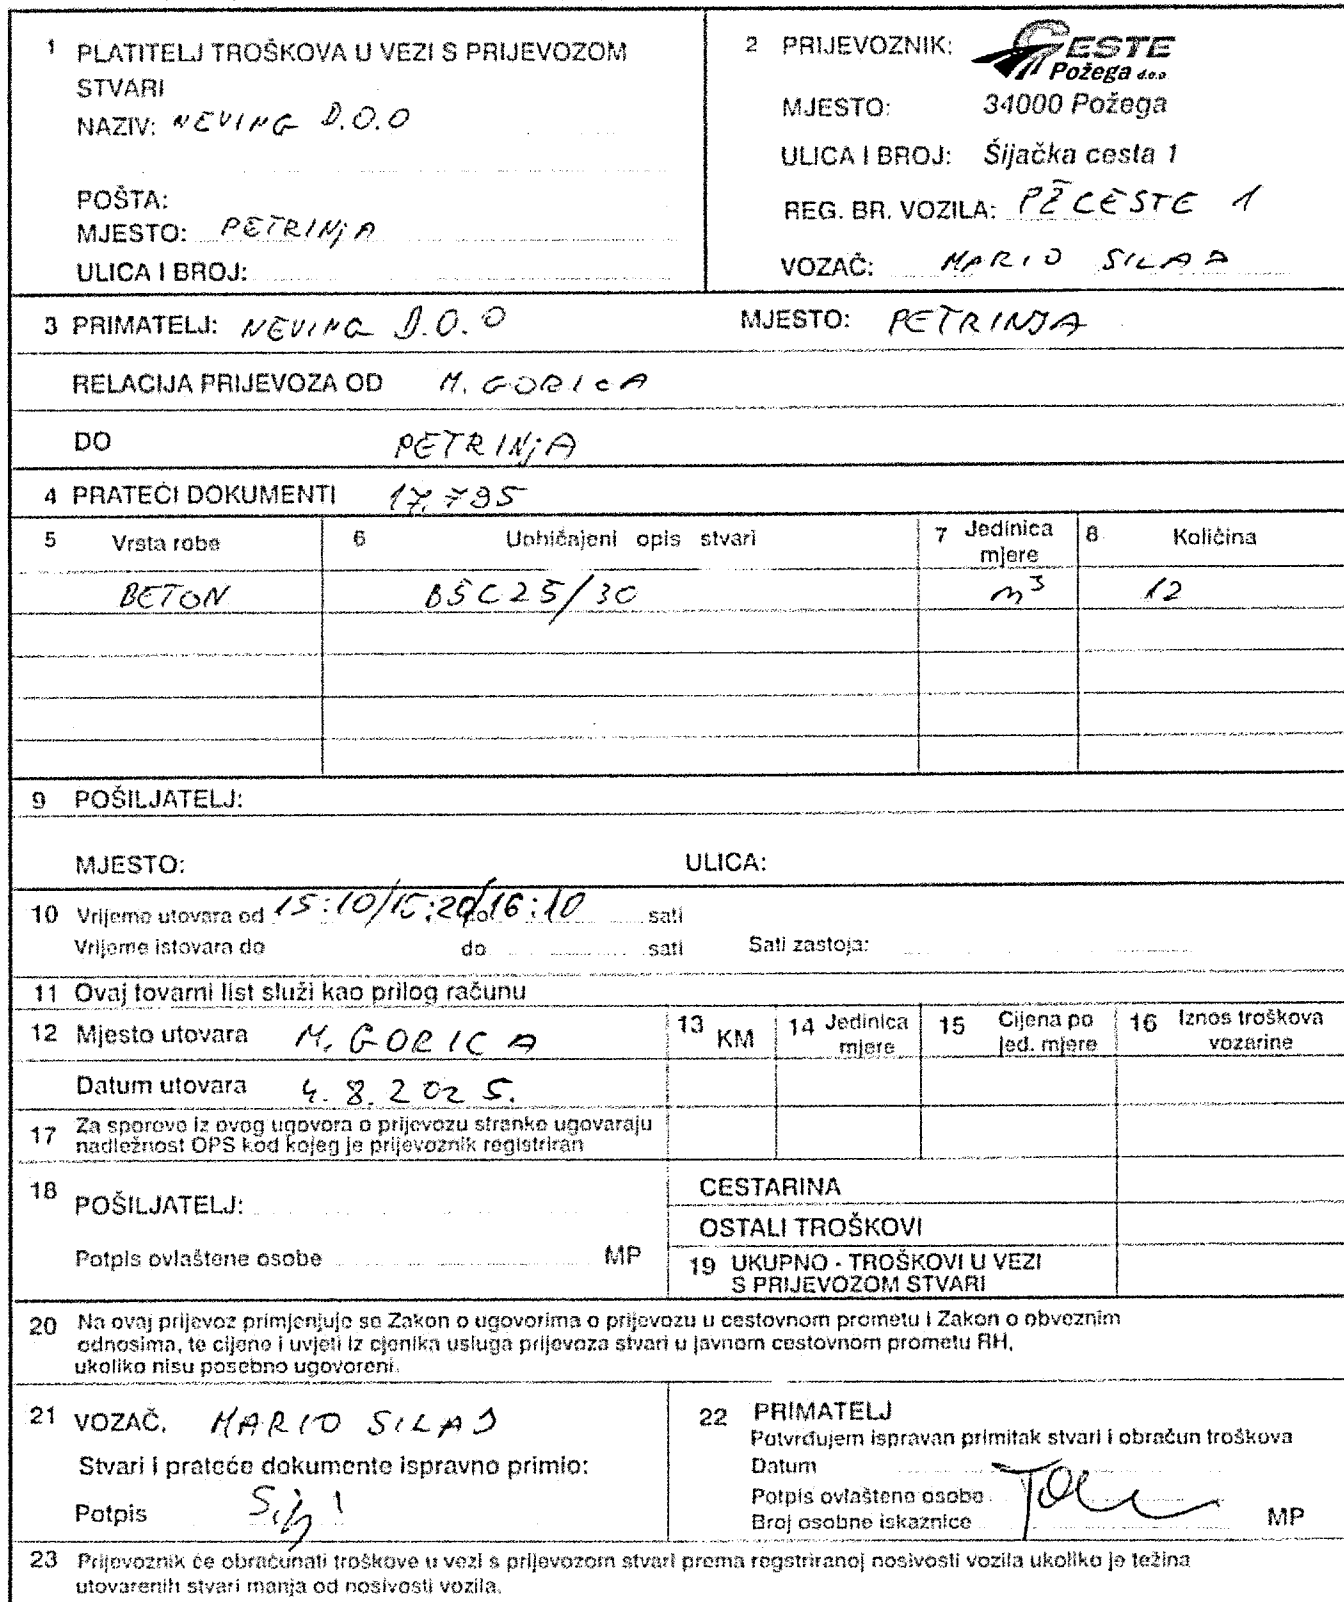 1 PLATITELJ TROŠKOVA U VEZI S PRIJEVOZOM
STVARI
NAZIV: NEVING D.O.O
POŠTA:
MJESTO: PETRINJA
ULICA I BROJ:
2 PRIJEVOZNIK: CESTE
Požega d.o.o.
MJESTO: 34000 Požega
ULICA I BROJ: Šijačka cesta 1
REG. BR. VOZILA: PŽ CESTE 1
VOZAČ: MARIO SILAJ
3 PRIMATELJ: NEVING D.O.O MJESTO: PETRINJA
RELACIJA PRIJEVOZA OD M. GORICA
DO PETRINJA
4 PRATEĆI DOKUMENTI
5 Vrsta robe 6 Uobičajeni opis stvari 7 Jedinica mjere 8 Količina
BETON BŠC25/30 m³ 12
9 POŠILJATELJ:
MJESTO: ULICA:
10 Vrijeme utovara od 15:10/15:20/16:10 sati
Vrijeme istovara do do sati Sati zastoja:
11 Ovaj tovarni list služi kao prilog računu
12 Mjesto utovara M. GORICA 13 KM 14 Jedinica mjere 15 Cijena po jed. mjere 16 Iznos troškova vozarine
Datum utovara 4. 8. 2025.
17 Za sporove iz ovog ugovora o prijevozu stranke ugovaraju
nadležnost OPS kod kojeg je prijevoznik registriran
18 POŠILJATELJ:
Potpis ovlaštene osobe MP
CESTARINA
OSTALI TROŠKOVI
19 UKUPNO - TROŠKOVI U VEZI
S PRIJEVOZOM STVARI
20 Na ovaj prijevoz primjenjuje se Zakon o ugovorima o prijevozu u cestovnom prometu i Zakon o obveznim
odnosima, te cijene i uvjeti iz cjenika usluga prijevoza stvari u javnom cestovnom prometu RH,
ukoliko nisu posebno ugovoreni.
21 VOZAČ. MARIO SILAJ
Stvari i prateće dokumente ispravno primio:
Potpis
22 PRIMATELJ
Potvrđujem ispravan primitak stvari i obračun troškova
Datum
Potpis ovlaštene osobe
Broj osobne iskaznice MP
23 Prijevoznik će obračunati troškove u vezi s prijevozom stvari prema regstriranoj nosivosti vozila ukoliko je težina
utovarenih stvari manja od nosivosti vozila.